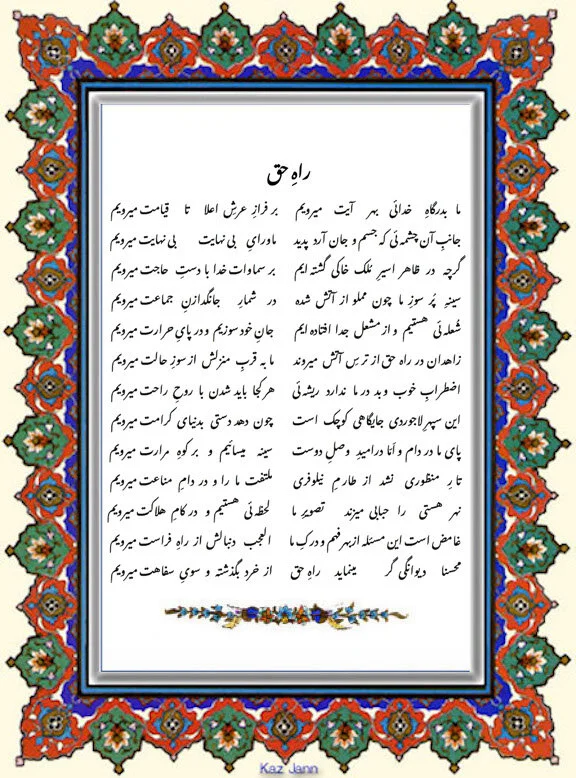 راهِ حق
ما بدرگاهِ خدائی بهر آیت میرویم بر فرازِ عرشِ اعلا تا قیامت میرویم
جانبِ آن چشمه ئی که جسم و جان آرد پدید ماورایِ بی نهایت بی نهایت میرویم
گرچه در ظاهر اسیرِ مُلک خاکی گشته ایم بر سماوات خدا با دستِ حاجت میرویم
سینهٔ پُر سوزِ ما چون مملو از آتش شده در شمارِ جانگدازنِ جماعت میرویم
شعله ئی هستیم و از مشعل جدا افتاده ایم جانِ خود سوزیم و در پایِ حرارت میرویم
زاهدان در راه حق از ترسِ آتش میروند ما به قربِ منزلش از سوزِ حالت میرویم
اضطرابِ خوب و بد در ما ندارد ریشه ئی هر کجا باید شدن با روحِ راحت میرویم
این سپهرِ لاجوردی جایگاهی کوچک است چون دهد دستی بدنیای کرامت میرویم
پای ما در دام و اَنا درامیدِ وصلِ دوست سینه میسائیم و بر کوهِ مرارت میرویم
تا رِ منظوری نشد از طارمِ نیلوفری ملتفت ما را و در دامِ مناعت میرویم
نهر هستی را حبابی میزند تصویرِ ما لحظه ئی هستیم و در کامِ هلاکت میرویم
غامض است این مسئله از بهر فهم و درکِ ما العجب دنبالش از راهِ فراست میرویم
محسنا دیوانگی گر مینماید راهِ حق از خرد بگذشته و سویِ سفاهت میرویم
Kaz Jann